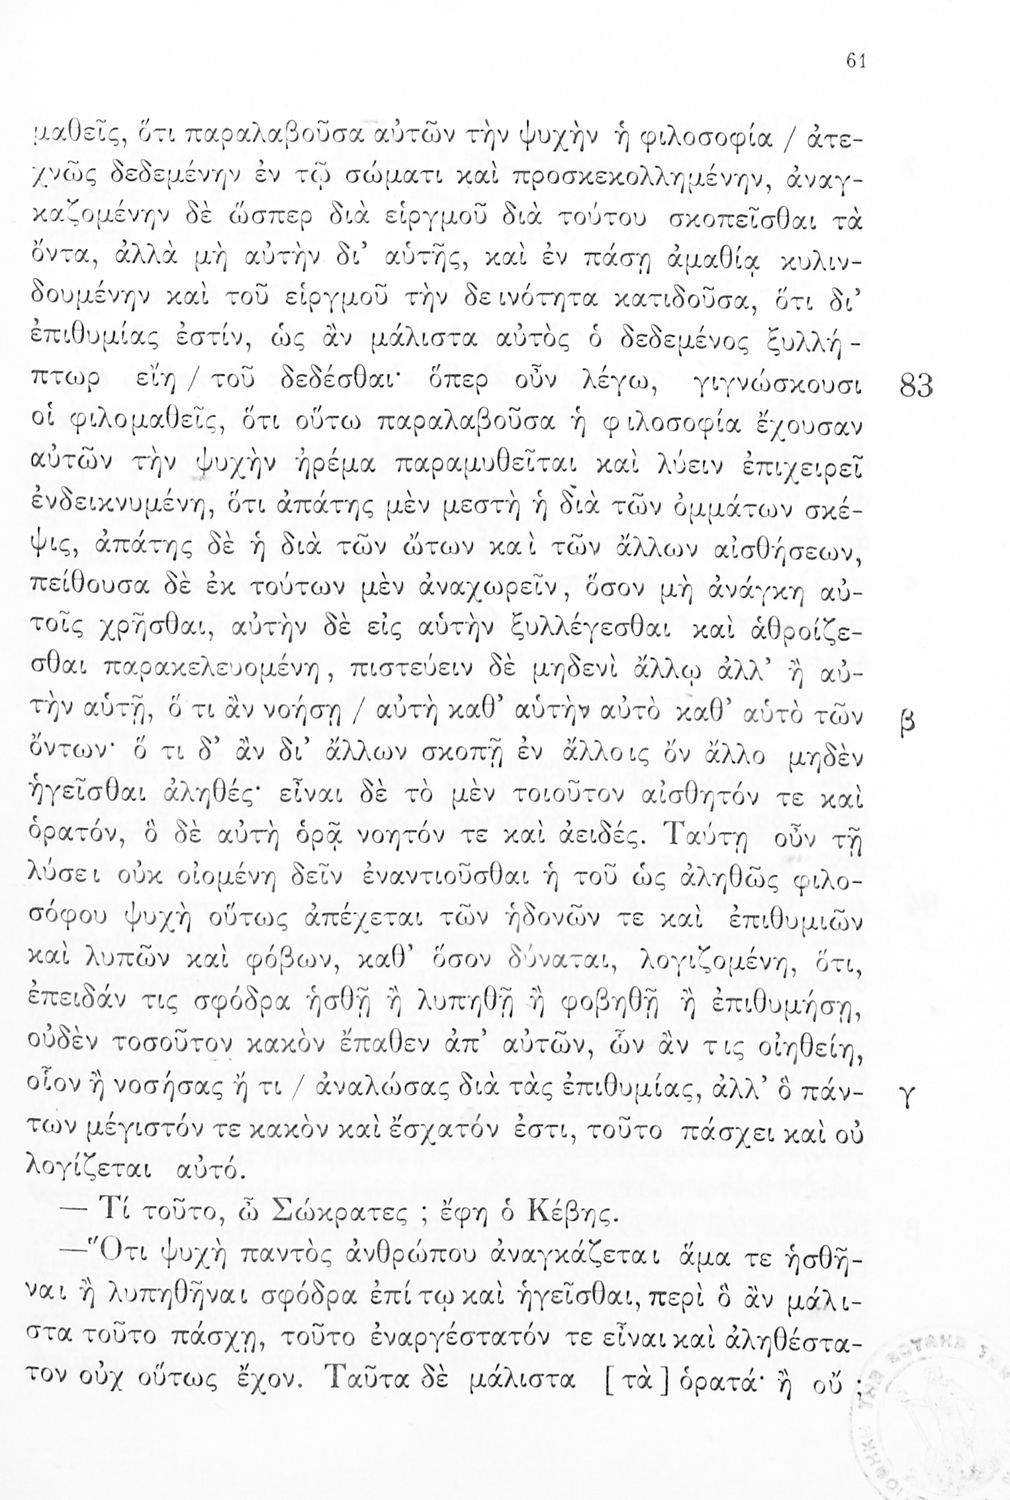 61
μαθεῖς, ὅτι παραλαβοῦσα αὐτῶν τὴν ψυχὴν ἡ φιλοσοφία / ἀτε-
χνῶς δεδεμένην ἐν τῷ σώματι καὶ προσκεκολλημένην, ἀναγ-
καζομένην δὲ ὥσπερ διὰ εἱργμοῦ διὰ τούτου σκοπεῖσθαι τὰ
ὄντα, ἀλλὰ μὴ αὐτὴν δι’ αὑτῆς, καὶ ἐν πάσῃ ἀμαθίᾳ κυλιν-
δουμένην καὶ τοῦ εἱργμοῦ τὴν δεινότητα κατιδοῦσα, ὅτι δι’
ἐπιθυμίας ἐστίν, ὡς ἂν μάλιστα αὐτὸς ὁ δεδεμένος ξυλλή-
πτωρ εἴη / τοῦ δεδέσθαι· ὅπερ οὖν λέγω, γιγνώσκουσι 83
οἱ φιλομαθεῖς, ὅτι οὕτω παραλαβοῦσα ἡ φιλοσοφία ἔχουσαν
αὐτῶν τὴν ψυχὴν ἠρέμα παραμυθεῖται καὶ λύειν ἐπιχειρεῖ
ἐνδεικνυμένη, ὅτι ἀπάτης μὲν μεστὴ ἡ διὰ τῶν ὀμμάτων σκέ-
ψις, ἀπάτης δὲ ἡ διὰ τῶν ὤτων καὶ τῶν ἄλλων αἰσθήσεων,
πείθουσα δὲ ἐκ τούτων μὲν ἀναχωρεῖν, ὅσον μὴ ἀνάγκη αὐ-
τοῖς χρῆσθαι, αὐτὴν δὲ εἰς αὑτὴν ξυλλέγεσθαι καὶ ἁθροίζε-
σθαι παρακελευομένη, πιστεύειν δὲ μηδενὶ ἄλλῳ ἀλλ’ ἢ αὐ-
τὴν αὑτῇ, ὅ τι ἂν νοήσῃ / αὐτὴ καθ’ αὑτὴν αὐτὸ καθ’ αὑτὸ τῶν β
ὄντων· ὅ τι δ’ ἂν δι’ ἄλλων σκοπῇ ἐν ἄλλοις ὂν ἄλλο μηδὲν
ἡγεῖσθαι ἀληθές· εἶναι δὲ τὸ μὲν τοιοῦτον αἰσθητόν τε καὶ
ὁρατόν, ὃ δὲ αὐτὴ ὁρᾷ νοητόν τε καὶ ἀειδές. Ταύτῃ οὖν τῇ
λύσει οὐκ οἰομένη δεῖν ἐναντιοῦσθαι ἡ τοῦ ὡς ἀληθῶς φιλο-
σόφου ψυχὴ οὕτως ἀπέχεται τῶν ἡδονῶν τε καὶ ἐπιθυμιῶν
καὶ λυπῶν καὶ φόβων, καθ’ ὅσον δύναται, λογιζομένη, ὅτι,
ἐπειδάν τις σφόδρα ἡσθῇ ἢ λυπηθῇ ἢ φοβηθῇ ἢ ἐπιθυμήσῃ,
οὐδὲν τοσοῦτον κακὸν ἔπαθεν ἀπ’ αὐτῶν, ὧν ἄν τις οἰηθείη,
οἷον ἢ νοσήσας ἤ τι / ἀναλώσας διὰ τὰς ἐπιθυμίας, ἀλλ’ ὃ πάν- γ
των μέγιστόν τε κακὸν καὶ ἔσχατόν ἐστι, τοῦτο πάσχει καὶ οὐ
λογίζεται αὐτό.
— Τί τοῦτο, ὦ Σώκρατες ; ἔφη ὁ Κέβης.
—Ὅτι ψυχὴ παντὸς ἀνθρώπου ἀναγκάζεται ἅμα τε ἡσθῆ-
ναι ἢ λυπηθῆναι σφόδρα ἐπί τῳ καὶ ἡγεῖσθαι, περὶ ὃ ἂν μάλι-
στα τοῦτο πάσχῃ, τοῦτο ἐναργέστατόν τε εἶναι καὶ ἀληθέστα-
τον οὐχ οὕτως ἔχον. Ταῦτα δὲ μάλιστα [τὰ] ὁρατά· ἢ οὔ ;